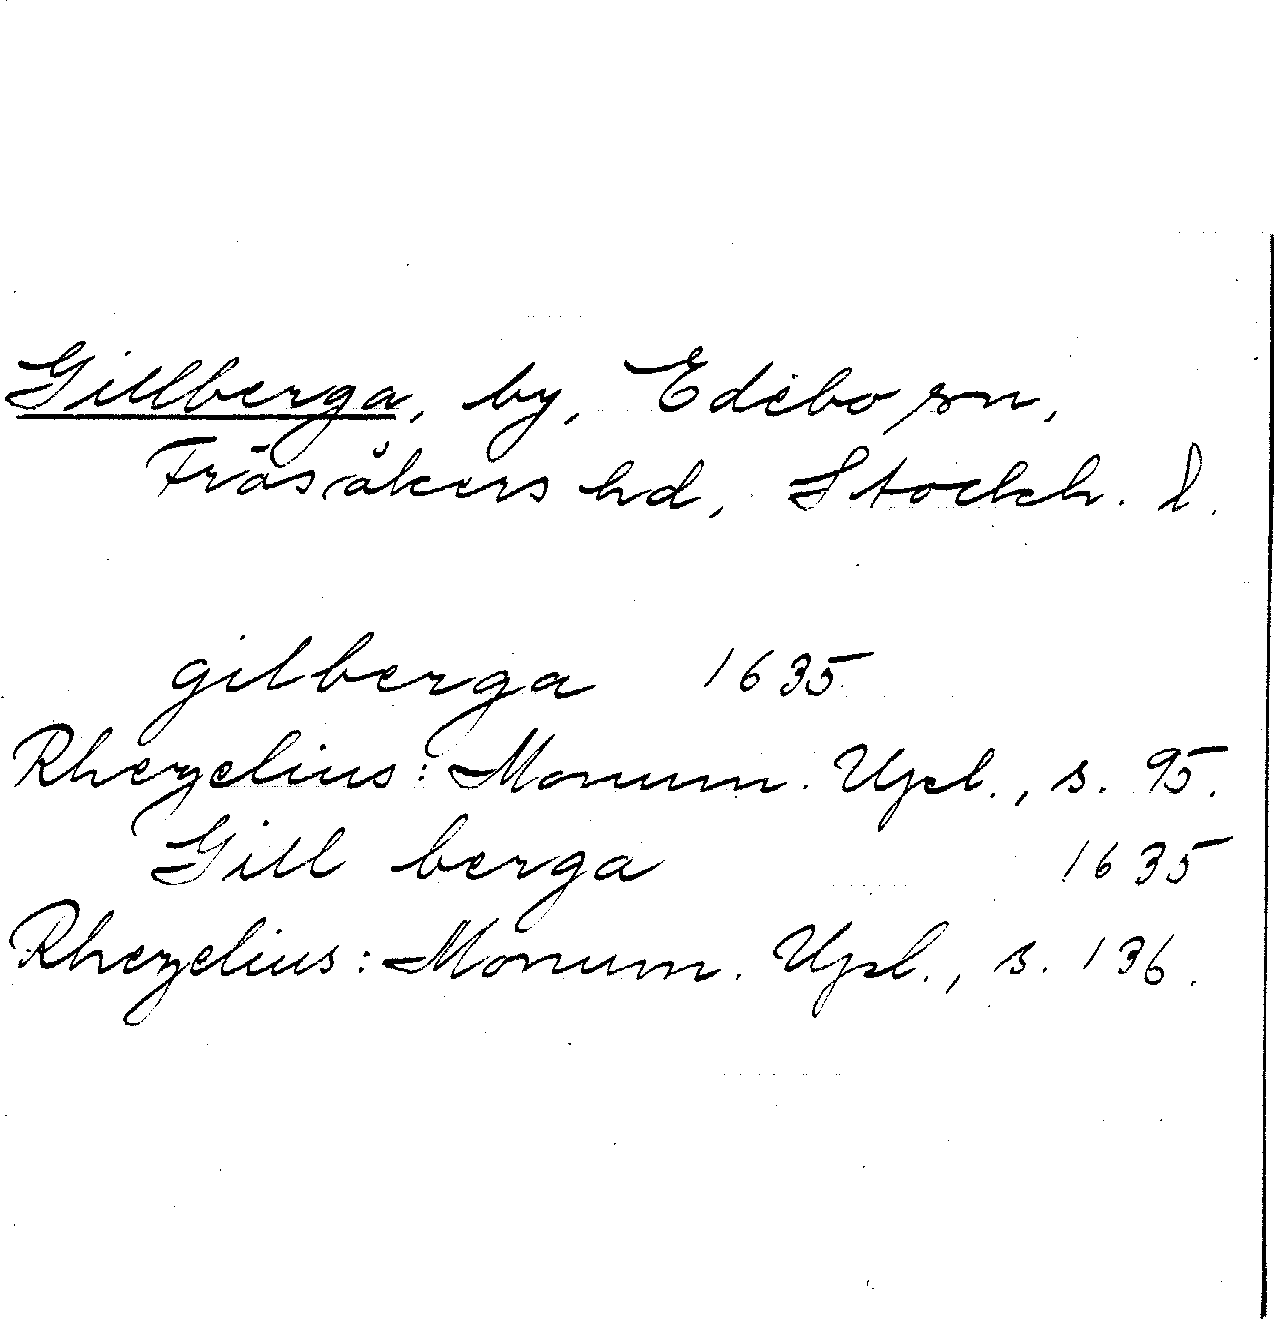 Gillberga, by, Edebo sn,
Frösåkers hd, Stockh. l.
gilberga 1635
Rhezelius: Monum. Upl., s. 95.
Gill berga 1635
Rhezelius: Monum. Upl., s. 136.